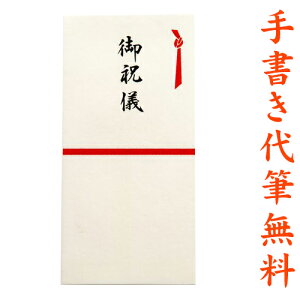 手書き代筆無料
御祝儀